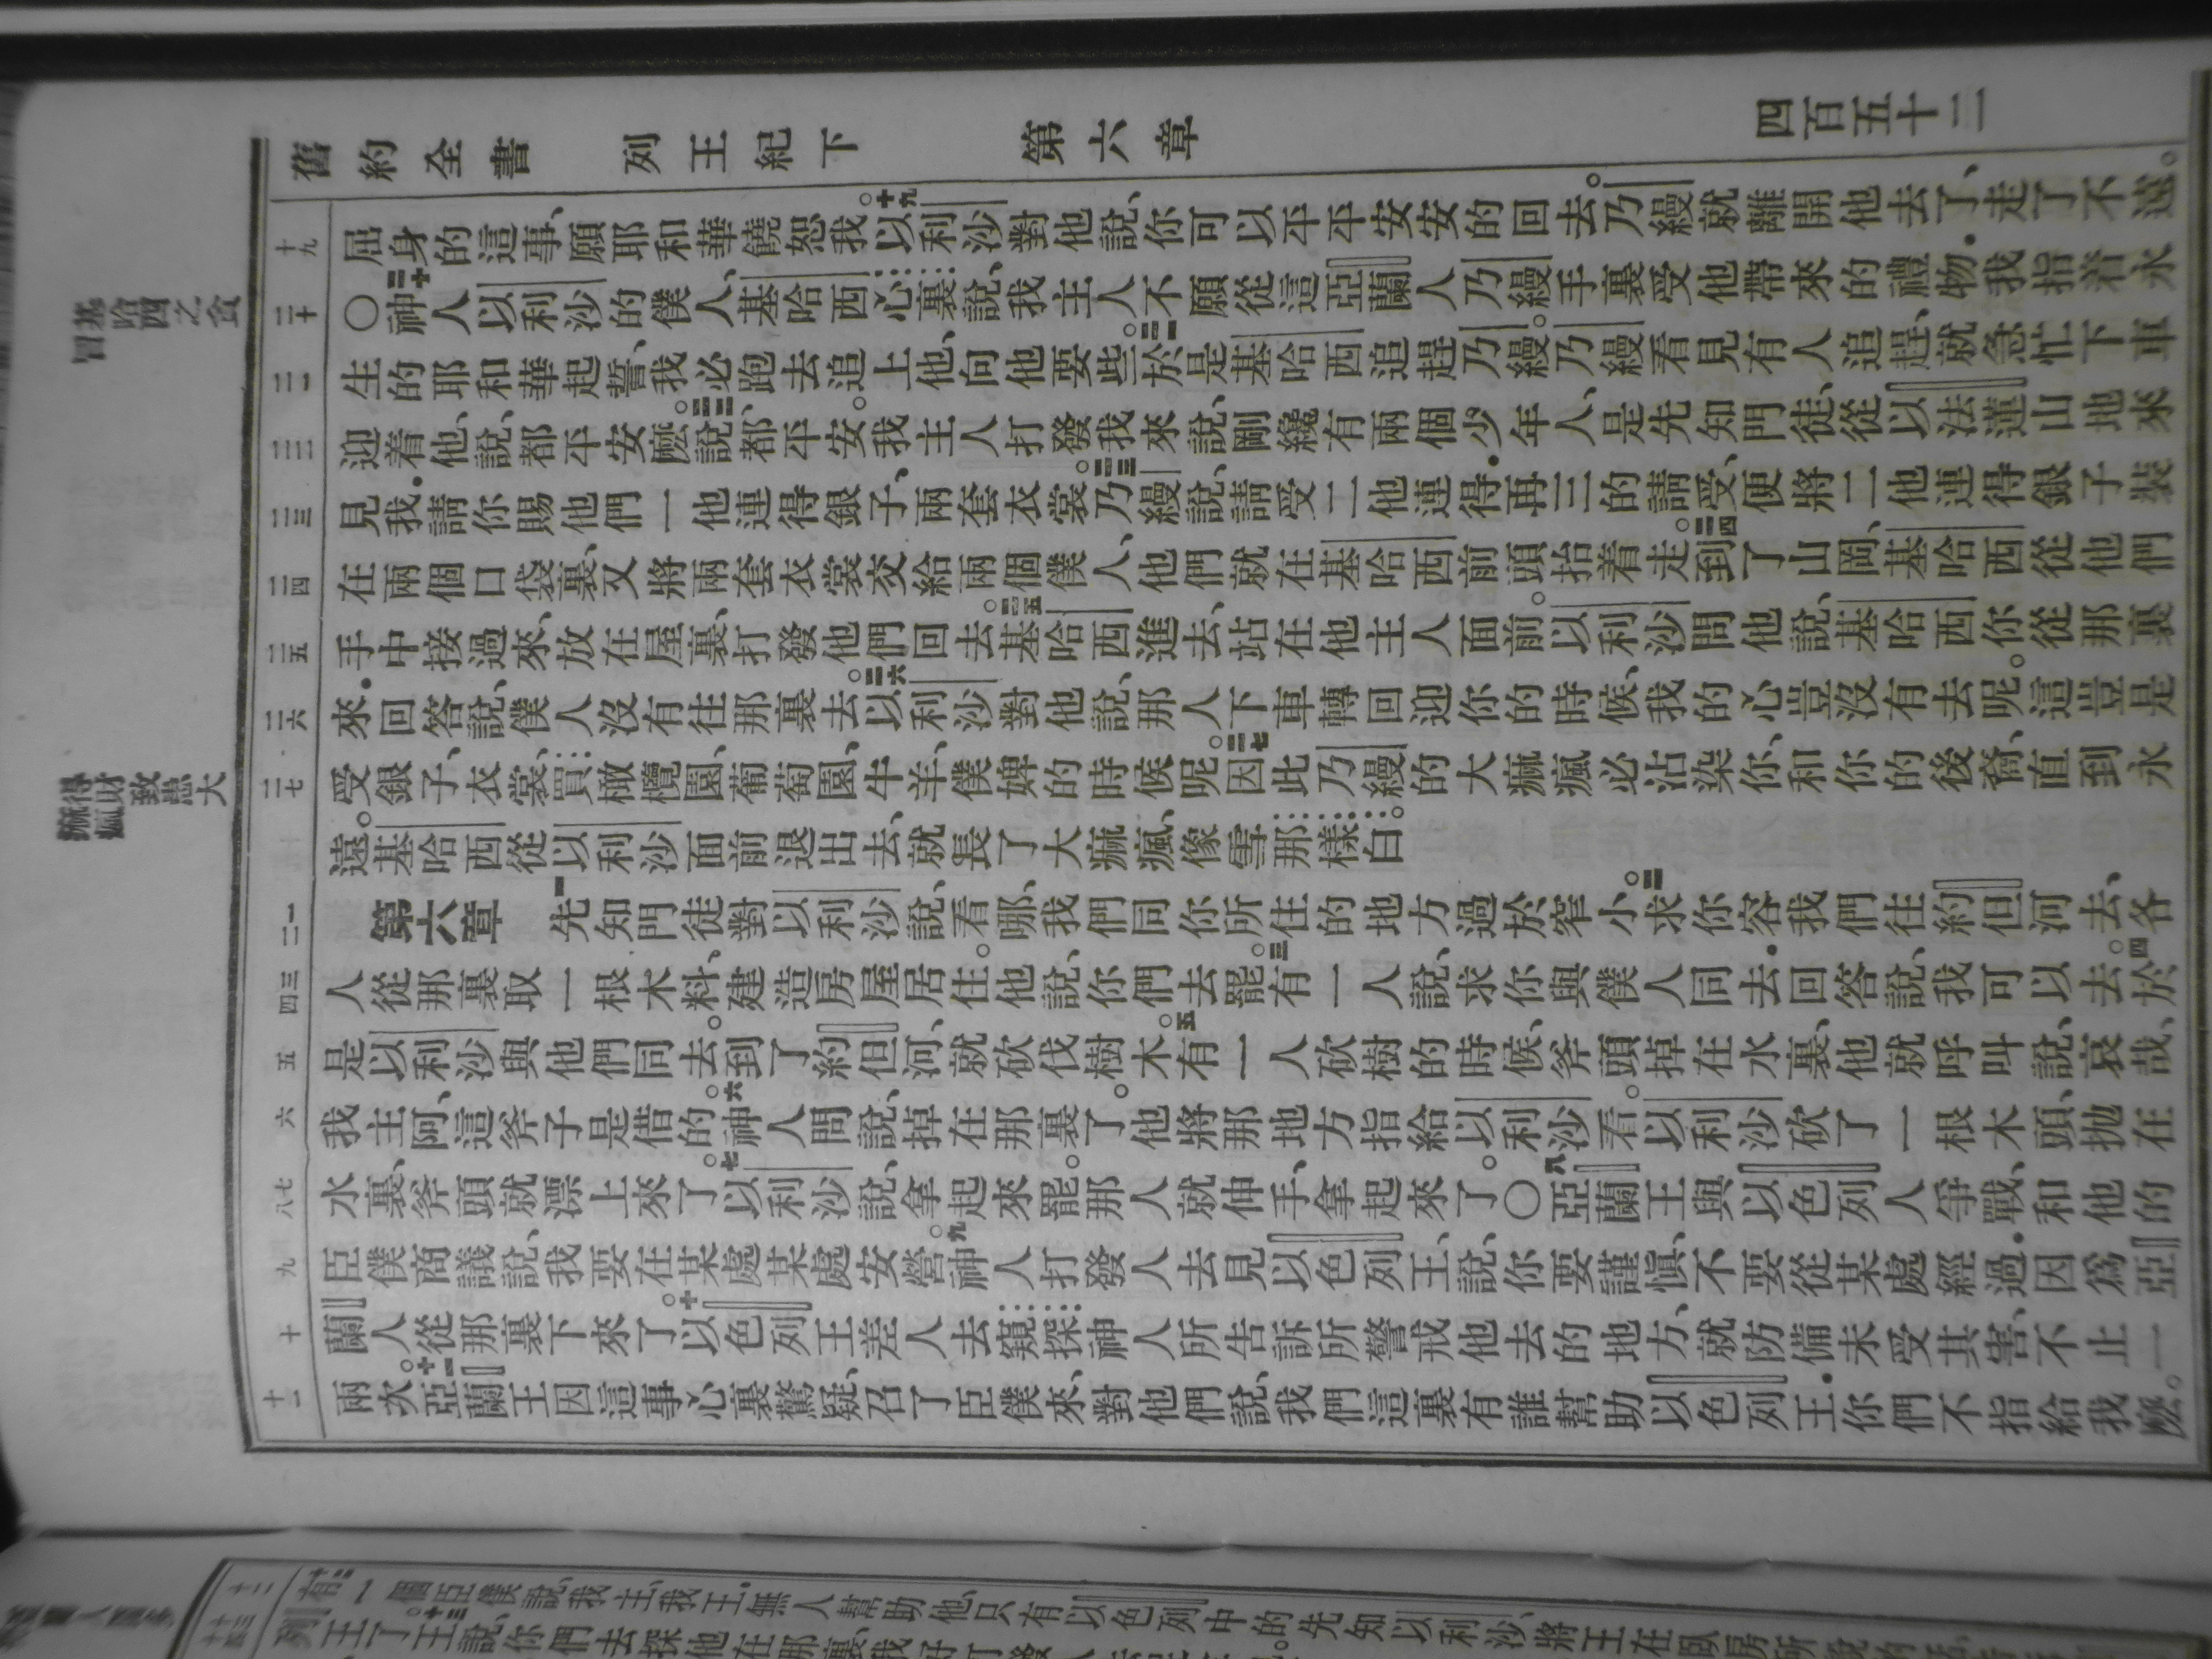 舊約全書 列王紀下 第六章 四百五十三
屈身的這事、願耶和華饒恕我。十九以利沙對他說、你可以平平安安的回去。乃縵就離開他去了、走了不遠。
〇二十神人以利沙的僕人、基哈西心裏說、我主人不願從這亞蘭人乃縵手裏受他帶來的禮物．我指着永
生的耶和華起誓、我必跑去追上他、向他要些。二一於是基哈西追趕乃縵。乃縵看見有人追趕、就急忙下車
迎着他、說、都平安麼。二二說、都平安。我主人打發我來說、剛纔有兩個少年人、是先知門徒、從以法蓮山地來
見我．請你賜他們一他連得銀子、兩套衣裳。二三乃縵說、請受二他連得．再三的請受、便將二他連得銀子裝
在兩個口袋裏、又將兩套衣裳交給兩個僕人、他們就在基哈西前頭抬着走。二四到了山岡、基哈西從他們
手中接過來、放在屋裏、打發他們回去。二五基哈西進去、站在他主人面前。以利沙問他說、基哈西你從那裏
來．回答說、僕人沒有往那裏去。二六以利沙對他說、那人下車轉回迎你的時候、我的心豈沒有去呢。這豈是
受銀子、衣裳、買橄欖園、葡萄園、牛羊、僕婢的時候呢。二七因此乃縵的大痲瘋、必沾染你、和你的後裔、直到永
遠。基哈西從以利沙面前退出去、就長了大痲瘋、像雪那樣白。
第六章 一先知門徒對以利沙說、看哪、我們同你所住的地方過於窄小。二求你容我們往約但河去、各
人從那裏取一根木料、建造房屋居住。他說、你們去罷。三有一人說、求你與僕人同去．回答說、我可以去。四於
是以利沙與他們同去。到了約但河、就砍伐樹木。五有一人砍樹的時候、斧頭掉在水裏、他就呼叫說、哀哉、
我主阿、這斧子是借的。六神人問說、掉在那裏了。他將那地方指給以利沙看。以利沙砍了一根木頭、拋在
水裏、斧頭就漂上來了。七以利沙說、拿起來罷。那人就伸手、拿起來了。〇八亞蘭王與以色列人爭戰、和他的
臣僕商議說、我要在某處某處安營。九神人打發人去見以色列王、說、你要謹慎、不要從某處經過．因爲亞
蘭人從那裏下來了。十以色列王差人去窺探神人所告訴所警戒他去的地方、就防備未受其害、不止一
兩次。十一亞蘭王因這事心裏驚疑、召了臣僕來、對他們說、我們這裏有誰幫助以色列王．你們不指給我麼。
十九
二十
二一
二二
二三
二四
二五
二六
二七
一二
三四
五
六
七八
九
十
十一
基哈西之貪
冒
得財致患大
痲瘋
有一個臣僕說、我主我王．無人幫助他、只有以色列中的先知以利沙、將王在臥房所說的話
列王了。十三王說、你們去探他在那裏、我好打發人